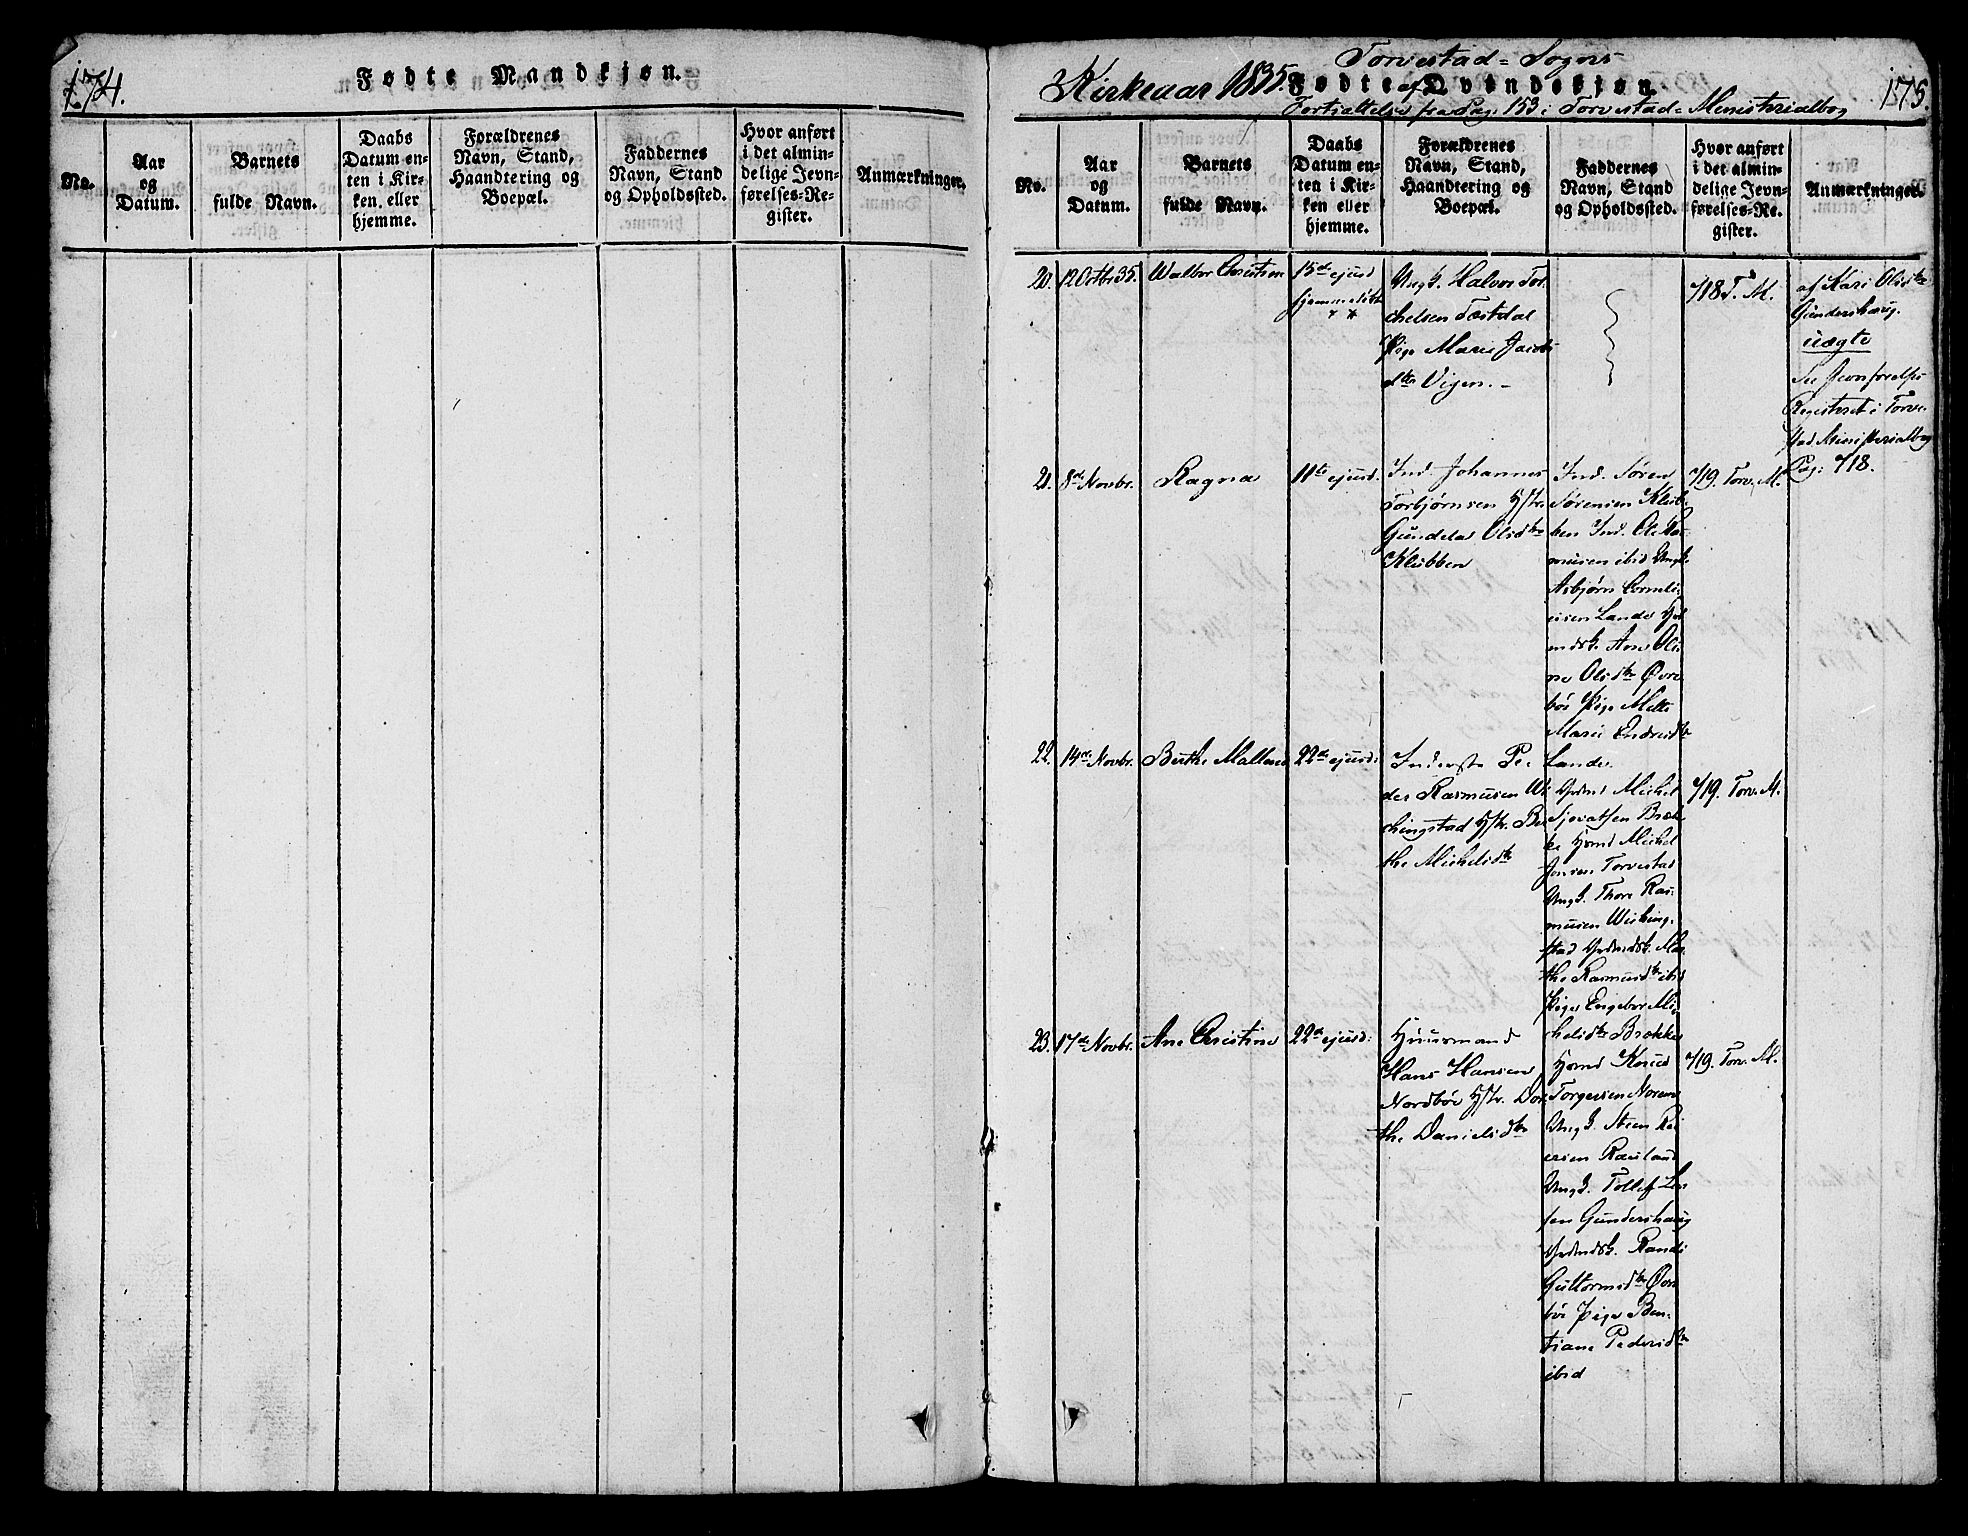 174.
Fødte Mandkjøn.
No.
Aar
og
Datum.
Barnets
fulde Navn.
Daabs
Datum en-
ten i Kir-
ken, eller
hjemme.
Forældrenes
Navn, Stand,
Haandtering og
Boepæl.
Faddernes
Navn, Stand
og Opholdssted.
Hvor anført
i det almin-
delige Jevn-
førelses-Re-
gister.
Anmærkninger.
Torvestad = Sogns
Kirkeaar 1835. Fødte af Qvindekjøn.
175.
Fortsættelse fra Pag. 153 i Torvestads Ministerialbog
No.
Aar
og
Datum.
Barnets
fulde Navn.
Daabs
Datum en-
ten i Kir-
ken eller
hjemme.
Forældrenes
Navn, Stand,
Haandtering og
Boepæl.
Faddernes
Navn, Stand
og Opholdssted.
Hvor anført
i det almin-
delige Jevn-
førelses-Re-
gister.
Anmærkninger.
20. 12 Octbr 35.
Walbor Christine
15de ejusd
hjemmedøbt
Ungk. Halvor Tor
chelsen Tæstdal
Pige Marie Jacobs
dtr Vigen. -
718 T. M.
af Kari Olsdtr
Gundershaug.
uægte
See Jevnførelses
Registeret i Torve-
stad Ministerialbog
Pag: 718.
21. 8de Novbr.
Ragna
11te ejusd.
Ind. Johannes
Torbjørnsen Hstr.
Gundela Olsdtr
Klubben
Ind. Søren
Sørensen Klub-
ben Ind. Ole Ras-
musen ibid Ungk.
Asbjørn Corneli-
usen Lande
mdsk. Ane Oli-
ne Olsdtr Øvre
bøe Pige Mette
Marie Endresdtr
Lande.
719. Torv. M.
22. 14de Novbr.
Berthe Mallene
22de ejusd:
Inderste Pe-
der Rasmusen Wi
chingstad Hstr. Ber
the Michelsdtr
Grdmd Michel
Sjovatsen Bræk-
ke Hsmd Michel
Jonsen Torvestad
Ungk. Thore Ras-
musen Wiching-
stad Grdmdsk. Mar
the Rasmusdtr ibid
Pige Engebor Mi-
chelsdtr Brække
719. Torv. M.
23. 17de Novbr.
Ane Christine
22de ejusd:
Huusmand
Hans Hansen
Nordbøe Hstr. Dor
the Danielsdtr
Hsmd Knud
Torgersen Norem
Ungk. Steen Rei
ersen Røeland
Ungk. Tollef Lar
sen Gundershaug
Grdmdsk. Randi
Guttormsdtr Øvre
bøe Pige Ben-
tiane Pedersdtr
ibid
719. Torv. M.